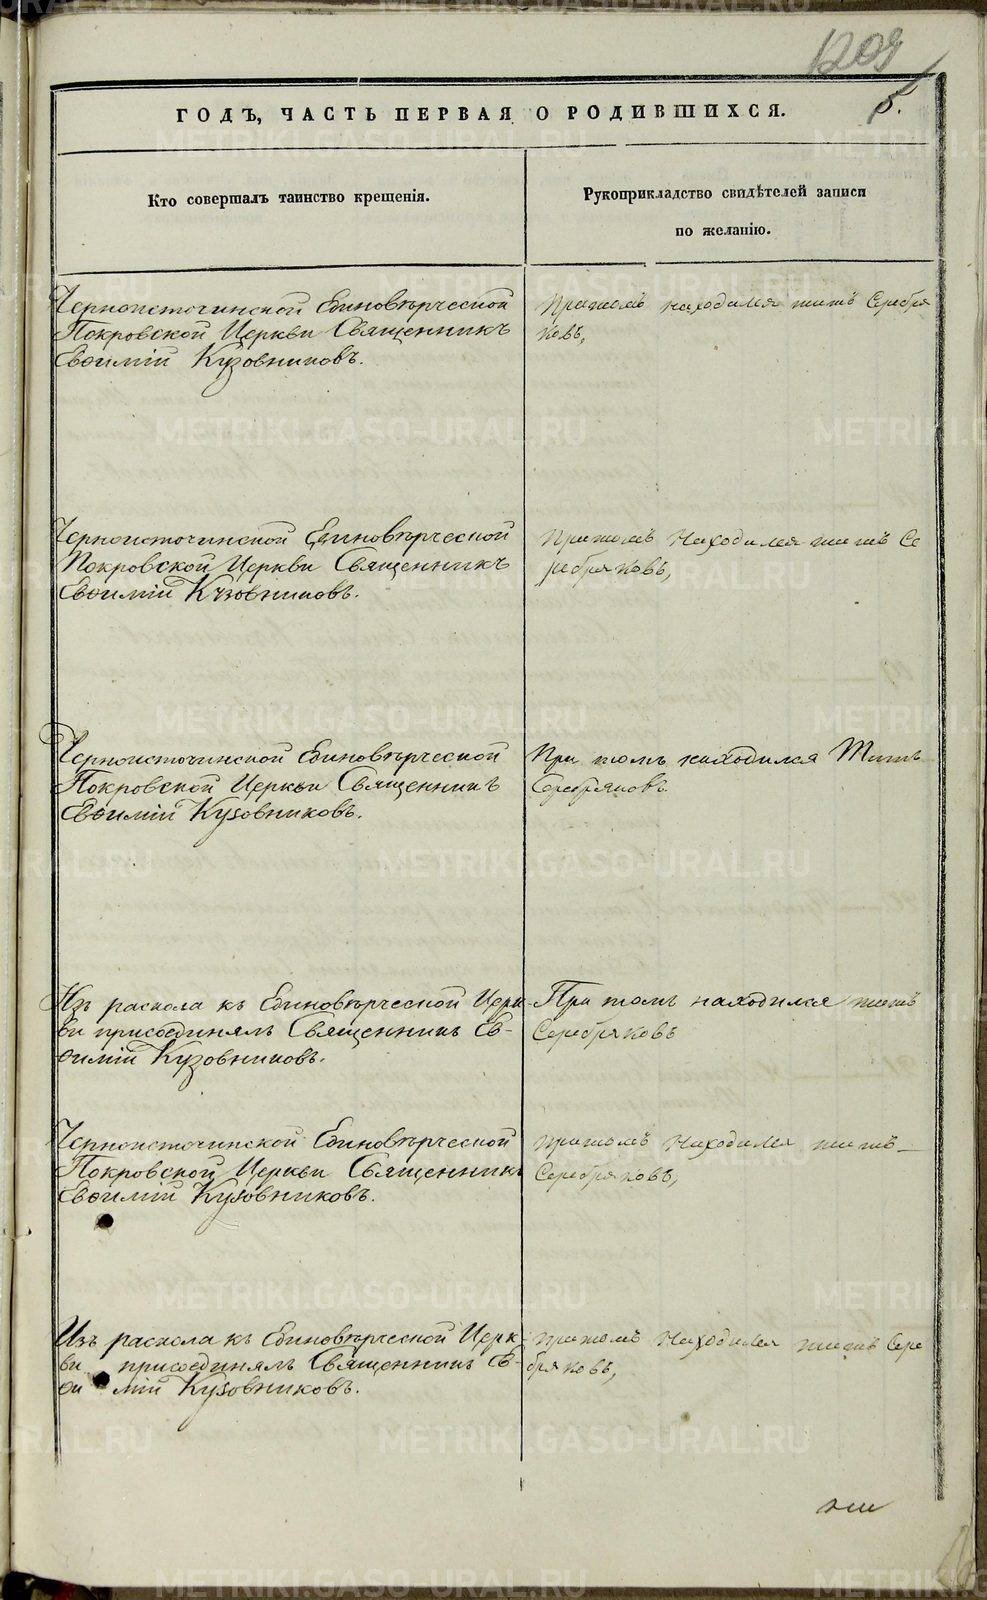 1209
5.
ГОДЪ, ЧАСТЬ ПЕРВАЯ О РОДИВШИХСЯ.
Кто совершалъ таинство крещенія.
Рукоприкладство свидѣтелей записи
по желанію.
Черноисточинской Единовѣрческой
Покровской Церкви Священникъ
Евѳимій Кузовниковъ.
Притомъ находился титъ Серебря
ковъ,
Черноисточинской Единовѣрческой
Покровской Церкви Священникъ
Евѳимій Кузовниковъ.
Притомъ Находился титъ Се
ребряковъ,
Черноисточинской Единовѣрческой
Покровской Церкви Священникъ
Евѳимій Кузовниковъ.
При томъ находился Титъ
Серебряковъ
Изъ раскола къ Единовѣрческой Церк-
ви присоединялъ Священникъ Ев-
ѳимій Кузовниковъ.
При томъ находился титъ
Серебряковъ
Черноисточинской Единовѣрческой
Покровской Церкви Священникъ
Евѳимій Кузовниковъ.
притомъ Находился титъ
Серебряковъ,
Изъ раскола къ Единовѣрческой Церк-
ви присоединялъ Священникъ Ев-
ѳимій Кузовниковъ.
притомъ Находился титъ Сере
бряковъ,
METRIKI.GASO-URAL.RU